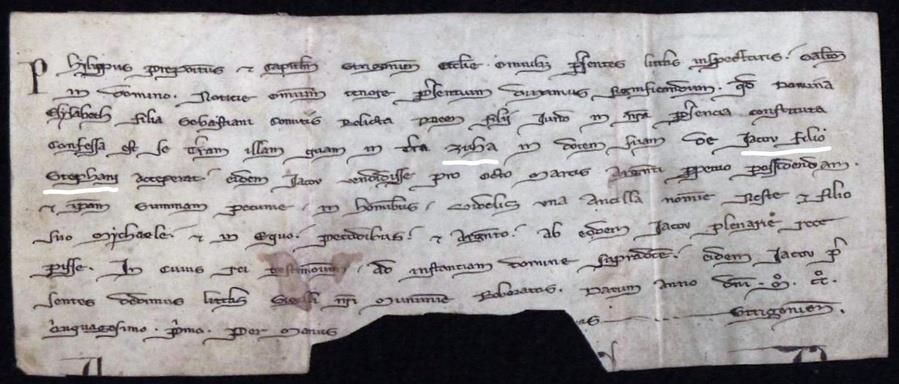 Philippus prepositus et Capitlm Strigonien Ecclie. Omnib3 presentes litteras inspecturis. Saltm
in domino. Noticie omnium tenore presentium duximus significandum. qd Domina
Elysabeth filia Sebastiani Comitis Relicta filij in nra presencia constituta
Confessa est se terram illam quam in terra Zuha in dotem suam de Jacov filio
Stephani acceperat. eidem Jacov vendidisse pro Octo Marcis Argenti perpetuo possidendam.
et ipam summam pecunie. in hominibus. videlicet una Ancilla nomine et filio
suo Michaele. et in Equo. pecudibus. et Argento. ab eodem Jacov plenarie rece
pisse. In cuius rei testimonium. ad instantiam domine supradicte. eidem Jacov pre
sentes dedimus litteras Sigilli nri Munimine Roboratas. Datum anno dni. M. CC.
Quinquagesimo. primo. Per Manus Strigonien.